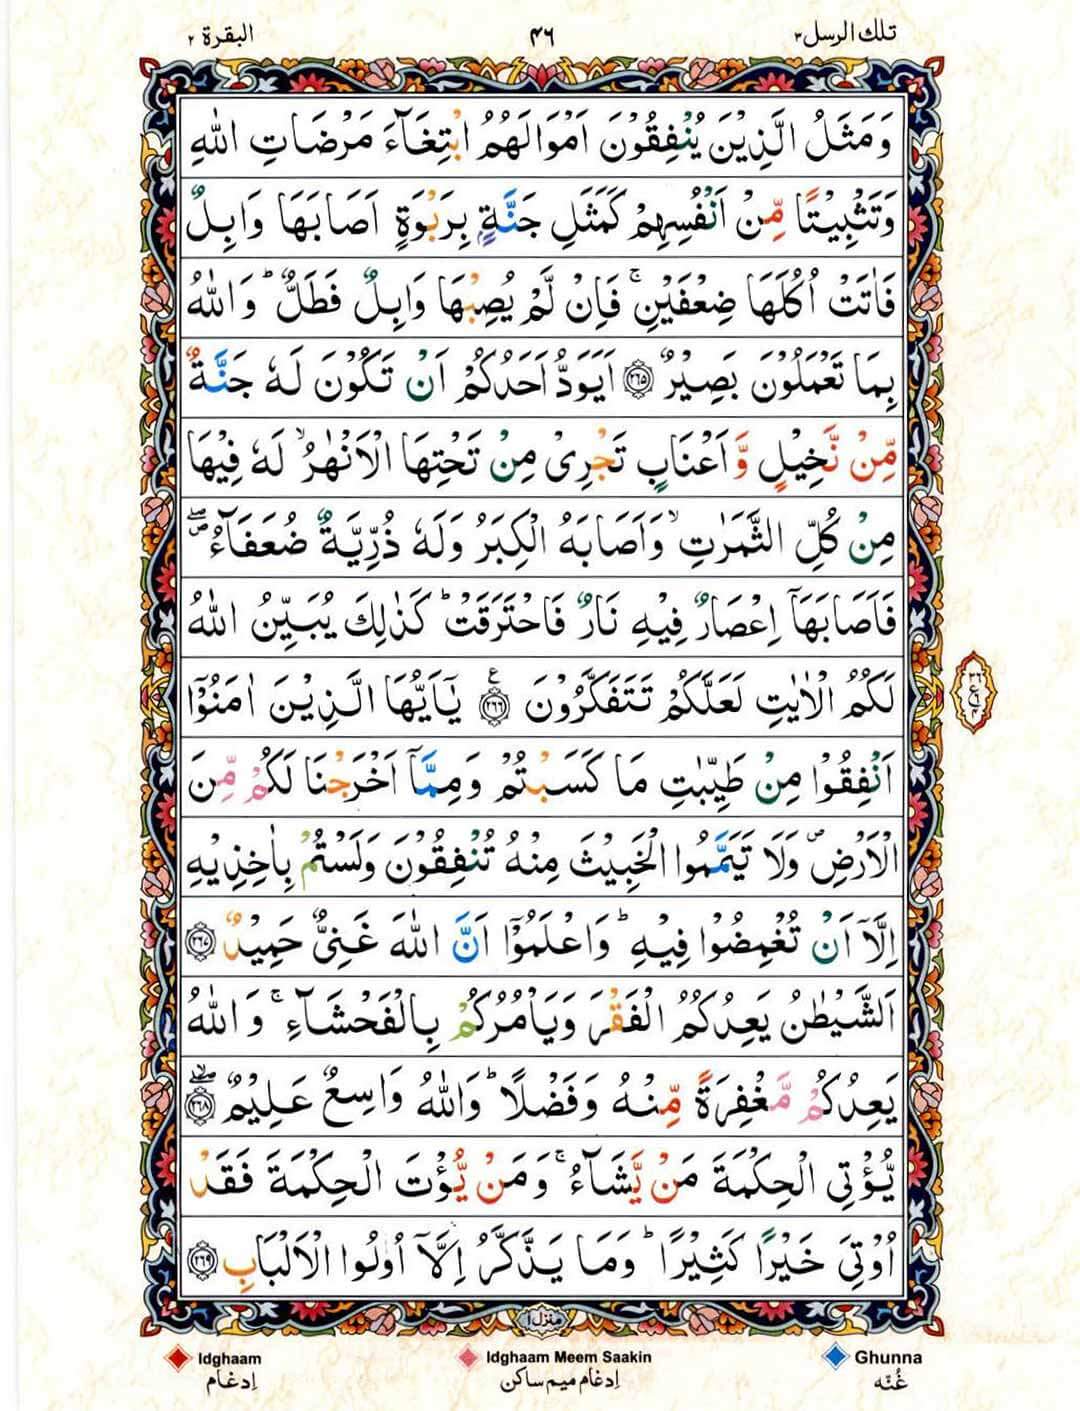 تلك الرسل ٣
٤٦
البقرة ٢
وَمَثَلُ الَّذِيْنَ يُنْفِقُوْنَ اَمْوَالَهُمُ ابْتِغَآءَ مَرْضَاتِ اللّٰهِ
وَتَثْبِيْتًا مِّنْ اَنْفُسِهِمْ كَمَثَلِ جَنَّةٍۭ بِرَبْوَةٍ اَصَابَهَا وَابِلٌ
فَاٰتَتْ اُكُلَهَا ضِعْفَيْنِ ۚ فَاِنْ لَّمْ يُصِبْهَا وَابِلٌ فَطَلٌّ ؕ وَاللّٰهُ
بِمَا تَعْمَلُوْنَ بَصِيْرٌ ﴿۲۶۵﴾ اَيَوَدُّ اَحَدُكُمْ اَنْ تَكُوْنَ لَهٗ جَنَّةٌ
مِّنْ نَّخِيْلٍ وَّاَعْنَابٍ تَجْرِىْ مِنْ تَحْتِهَا الْاَنْهٰرُ ۙ لَهٗ فِيْهَا
مِنْ كُلِّ الثَّمَرٰتِ ۙ وَاَصَابَهُ الْكِبَرُ وَلَهٗ ذُرِّيَّةٌ ضُعَفَآءُ ۖ
فَاَصَابَهَاۤ اِعْصَارٌ فِيْهِ نَارٌ فَاحْتَرَقَتْ ؕ كَذٰلِكَ يُبَيِّنُ اللّٰهُ
لَكُمُ الْاٰيٰتِ لَعَلَّكُمْ تَتَفَكَّرُوْنَ ﴿۲۶۶﴾ ع يٰۤاَيُّهَا الَّذِيْنَ اٰمَنُوْۤا
اَنْفِقُوْا مِنْ طَيِّبٰتِ مَا كَسَبْتُمْ وَمِمَّاۤ اَخْرَجْنَا لَكُمْ مِّنَ
الْاَرْضِ ۪ وَلَا تَيَمَّمُوا الْخَبِيْثَ مِنْهُ تُنْفِقُوْنَ وَلَسْتُمْ بِاٰخِذِيْهِ
اِلَّاۤ اَنْ تُغْمِضُوْا فِيْهِ ؕ وَاعْلَمُوْۤا اَنَّ اللّٰهَ غَنِىٌّ حَمِيْدٌ ﴿۲۶۷﴾
اَلشَّيْطٰنُ يَعِدُكُمُ الْفَقْرَ وَيَاْمُرُكُمْ بِالْفَحْشَآءِ ۚ وَاللّٰهُ
يَعِدُكُمْ مَّغْفِرَةً مِّنْهُ وَفَضْلًا ؕ وَاللّٰهُ وَاسِعٌ عَلِيْمٌ ﴿۲۶۸﴾
يُّؤْتِى الْحِكْمَةَ مَنْ يَّشَآءُ ۚ وَمَنْ يُّؤْتَ الْحِكْمَةَ فَقَدْ
اُوْتِىَ خَيْرًا كَثِيْرًا ؕ وَمَا يَذَّكَّرُ اِلَّاۤ اُولُوا الْاَلْبَابِ ﴿۲۶۹﴾
منزل ۱
Idghaam
ادغام
Idghaam Meem Saakin
ادغام ميم ساكن
Ghunna
غُنّه